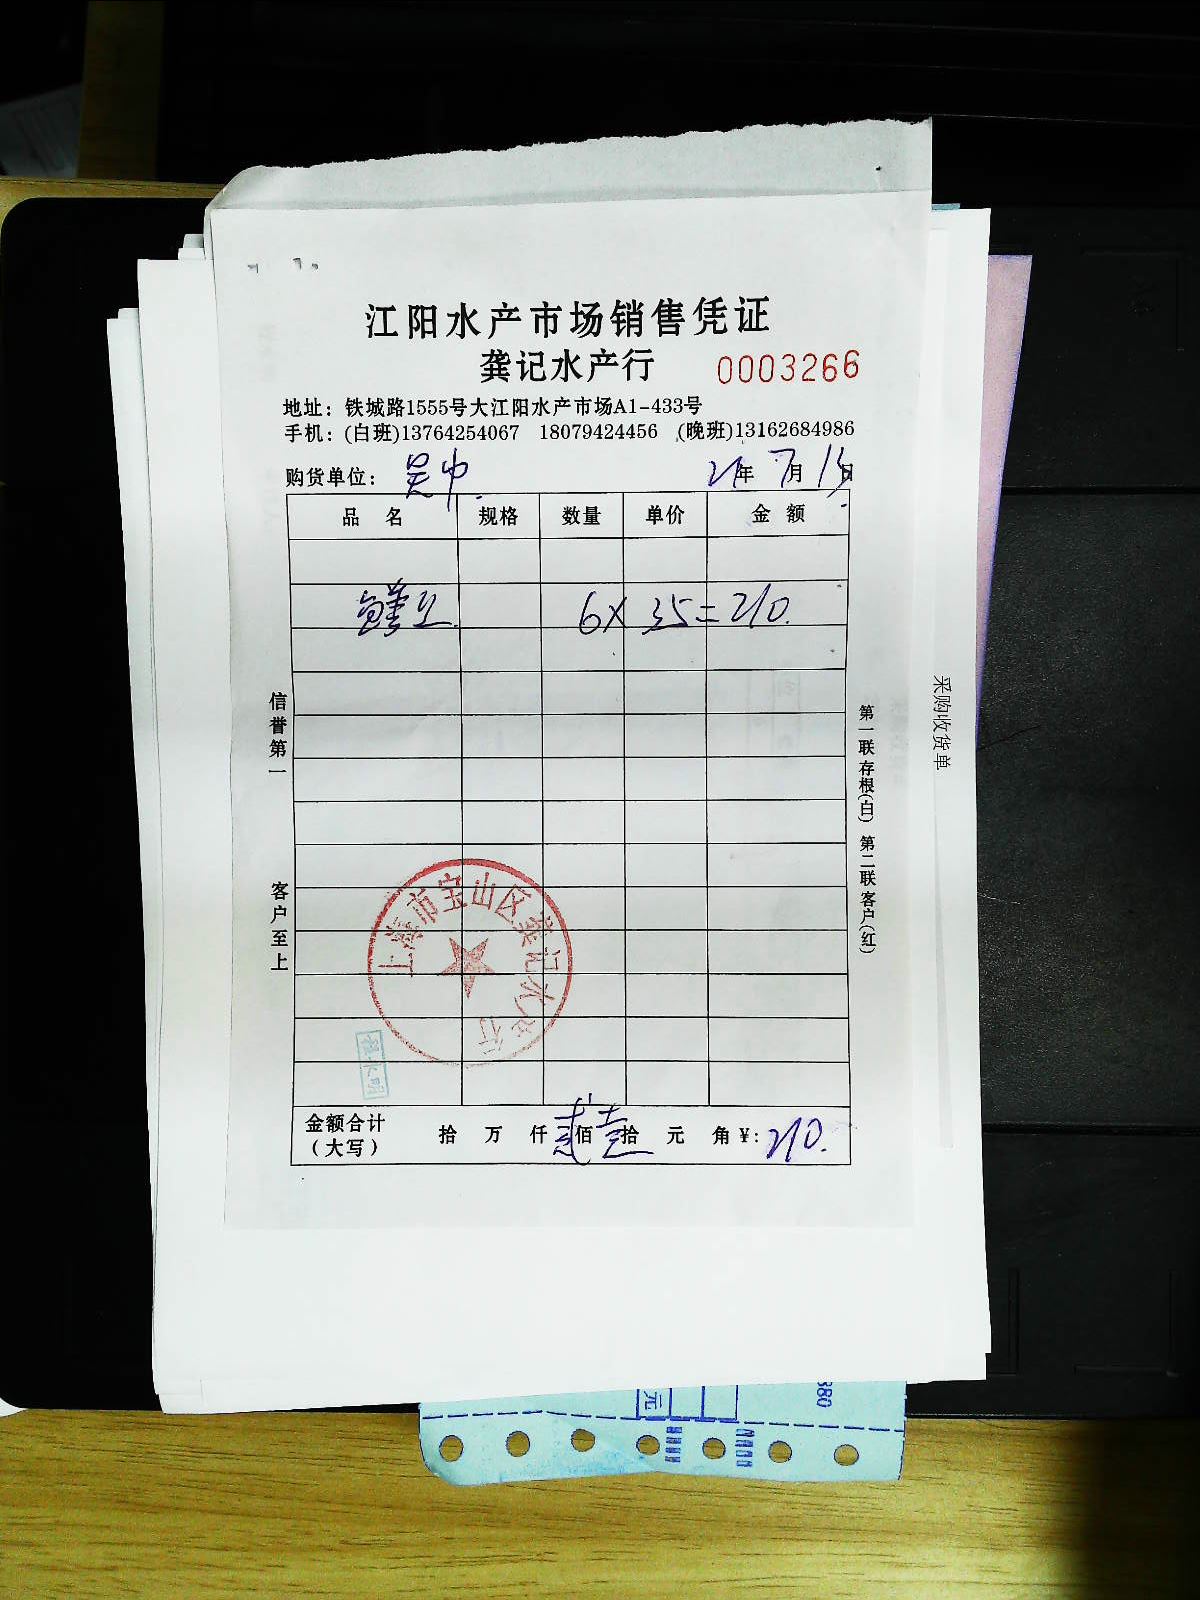 江阳水产市场销售凭证
龚记水产行 0003266
地址：铁城路1555号大江阳水产市场A1-433号
手机：(白班)13764254067 18079424456 (晚班)13162684986
购货单位： 吴中 21年 7月 13日
品 名 规格 数量 单价 金 额
6 × 35 = 210.
信誉第一
客户至上
第一联存根(白) 第二联客户(红)
采购收货单
上海市宝山区龚记水产行
金额合计 拾 万 仟 贰佰 壹拾 元 角 ¥: 210.
（大写）
元
380